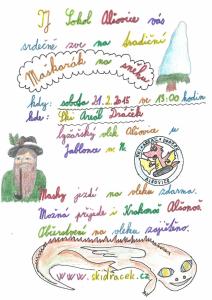 TJ Sokol Alšovice vás
srdečně zve na tradiční
Maškarák na sněhu
kdy: sobota 21.2.2015 ve 13:00 hodin
kde: Ski Areál Dráček
Lyžařský vlek Alšovice u
Jablonce n. N.
ALŠOVICE
Masky jezdí na vleku zdarma.
Možná přijede i Krakonoš Alšonoš
Občerstvení na vleku zajištěno.
www.skidracek.cz